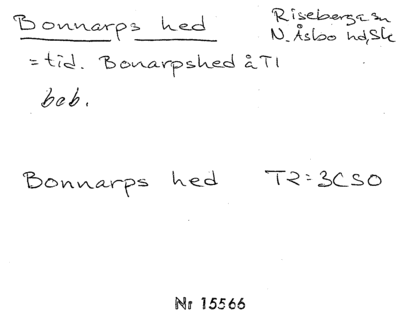 Bonnarps hed
Riseberga sn
N. Åsbo hd, Sk
= tid. Bonarpshed å T1
beb.
Bonnarps hed T2=3CSO
Nr 15566